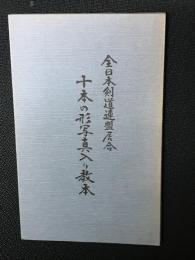 全日本剣道連盟居合
十本の形写真入り教本